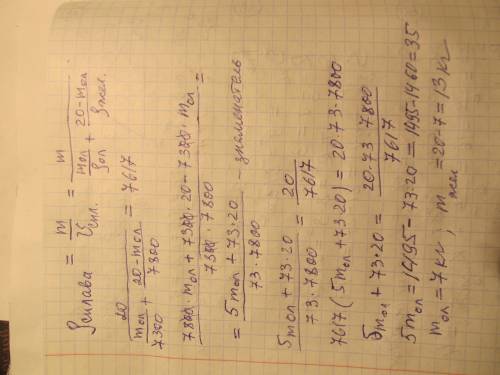 ρсплава = m / Vспл. = m / (mол/ρол + (20-mол)/ρжел.)
20 / (mол/7300 + (20-mол)/7800) = 7617
(7800·mол + 7300·20 - 7300·mол) / (7300·7800) =
= (5mол + 73·20) / (73·7800) - знаменатель
(5mол + 73·20) / (73·7800) = 20 / 7617
7617(5mол + 73·20) = 20·73·7800
5mол + 73·20 = (20·73·7800) / 7617
5mол = 1495 - 73·20 = 1495 - 1460 = 35
mол = 7кг, mжел = 20-7 = 13кг